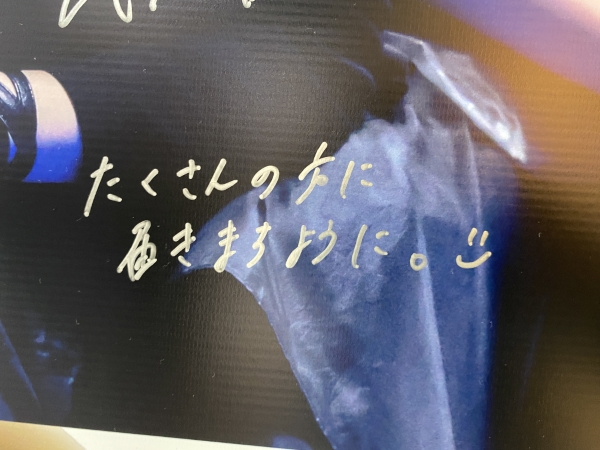 たくさんの方に
届きますように。